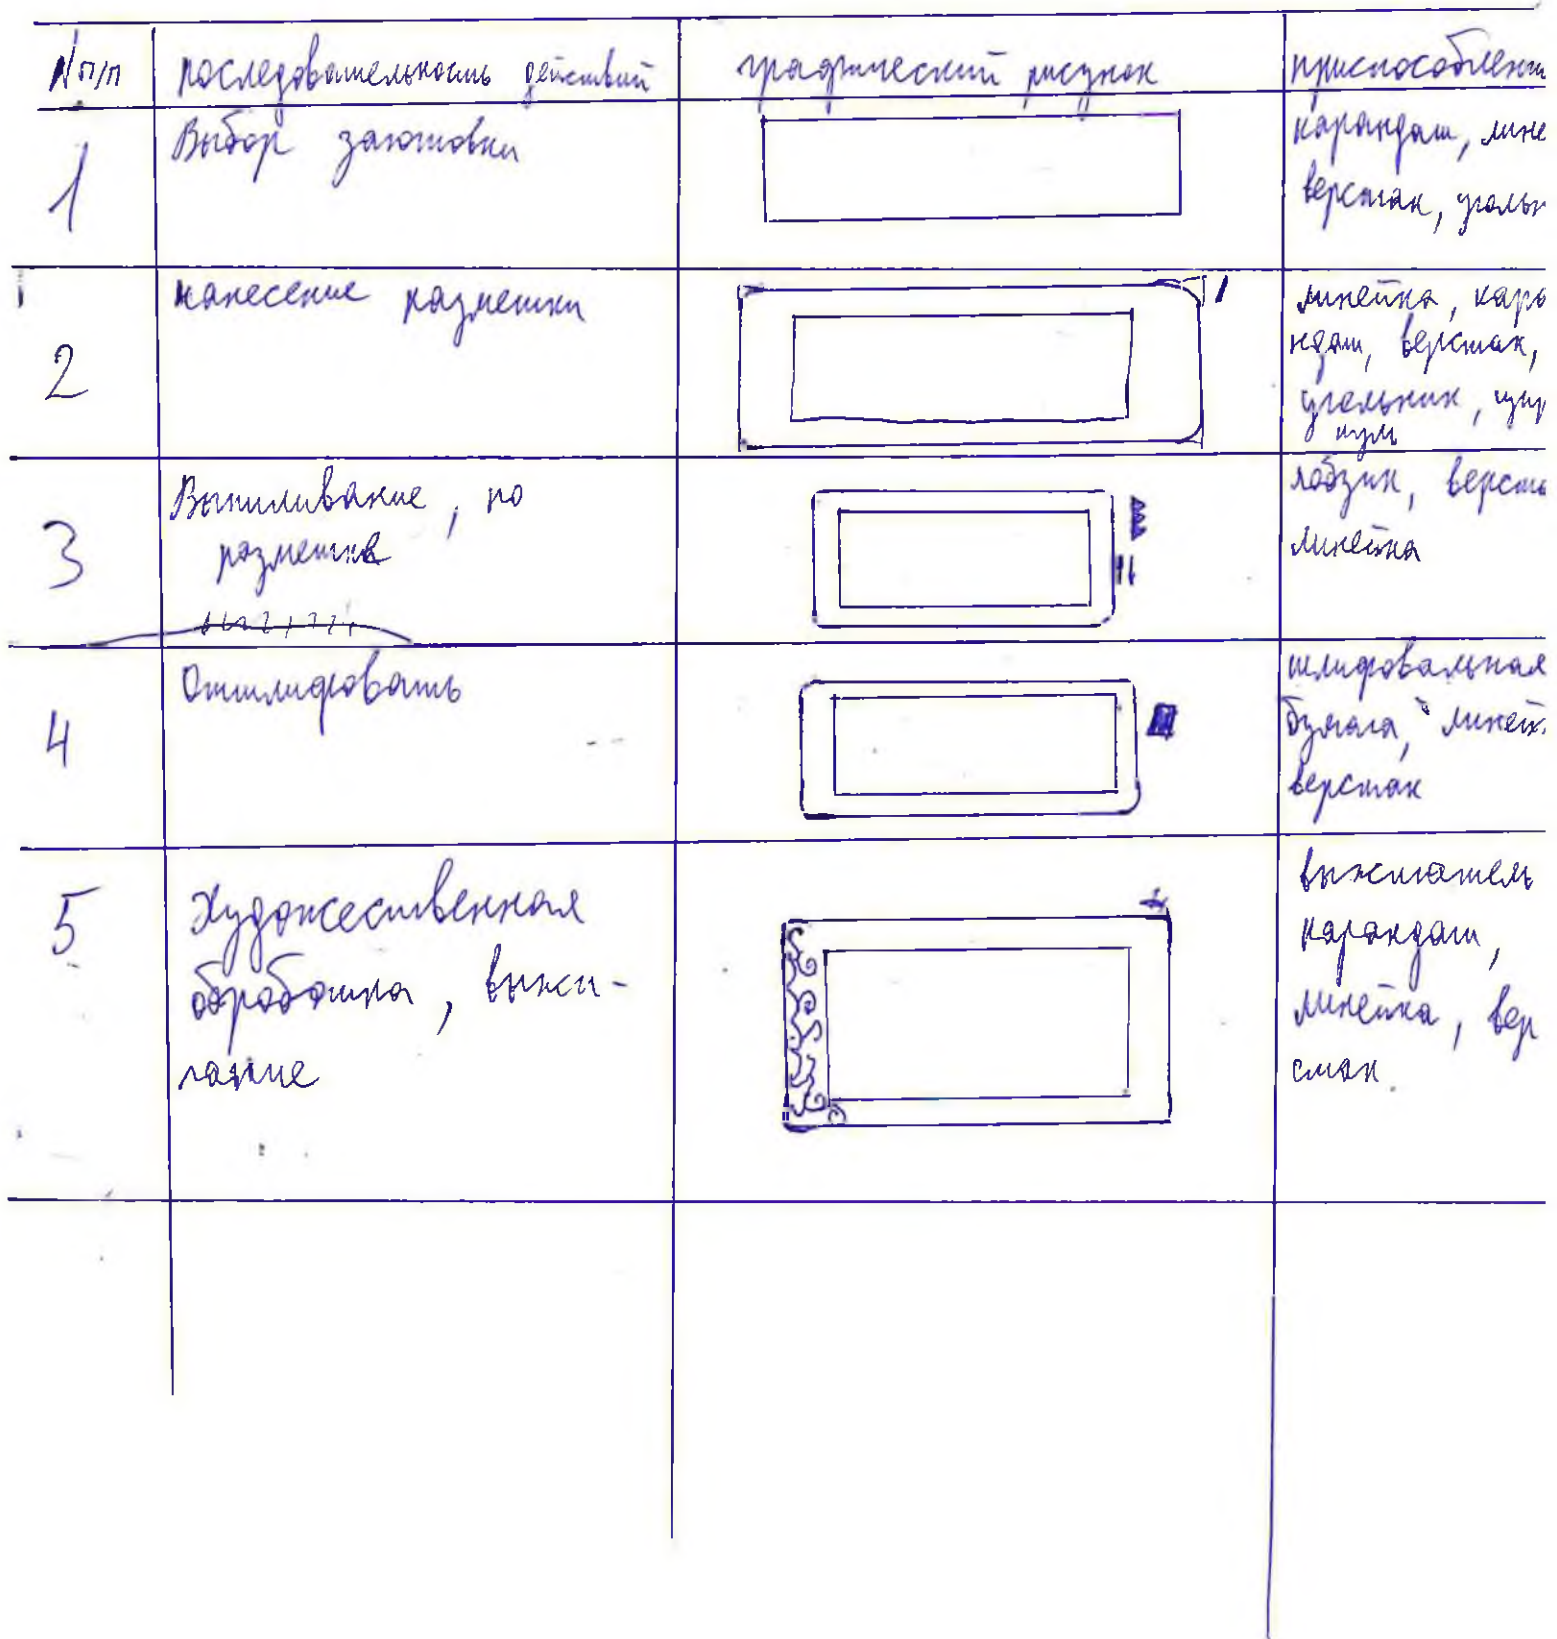 №п/п последовательность действий графический рисунок приспособлени
1 Выбор заготовки карандаш, лине
верстак, угольн
2 нанесение разметки линейка, кара
ндаш, верстак,
угольник, цир
куль
3 Выпиливание, по лобзик, верста
разметке линейка
4 Отшлифовать шлифовальная
бумага, линей
верстак
5 Художественная выжигатель
обработка, выжи- карандаш,
гание линейка, вер
стак.